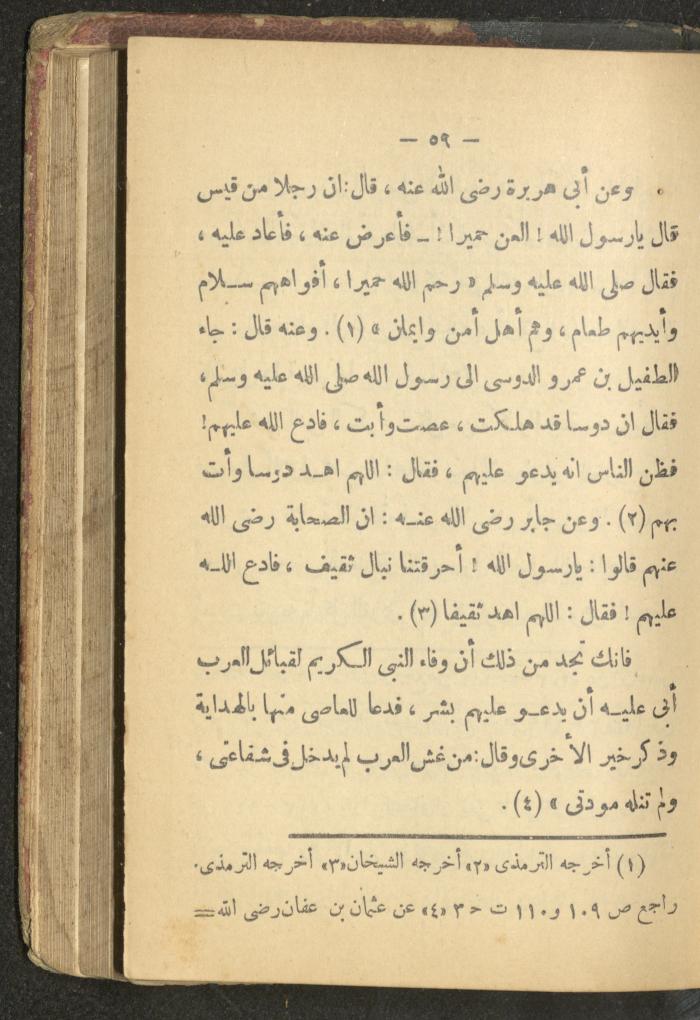 — ٥٩ —
وعن أبى هريرة رضى الله عنه ، قال : ان رجلا من قيس
قال يارسول الله ! العن حميرا ! ــ فأعرض عنه ، فأعاد عليه ،
فقال صلى الله عليه وسلم « رحم الله حميرا ، أفواههم ســلام
وأيديهم طعام ، وهم أهل أمن وايمان » (١) . وعنه قال : جاء
الطفيل بن عمرو الدوسى الى رسول الله صلى الله عليه وسلم ،
فقال ان دوسا قد هلـكت ، عصت وأبت ، فادع الله عليهم !
فظن الناس انه يدعو عليهم ، فقال : اللهم اهـد دوسا وأت
بهم (٢) . وعن جابر رضى الله عنــه : ان الصحابة رضى الله
عنهم قالوا : يارسول الله ! أحرقتنا نبال ثقيف ، فادع اللــه
عليهم ! فقال : اللهم اهد ثقيفا (٣) .
فانك تجد من ذلك أن وفاء النبى الـكريم لقبائل العرب
أبى عليــه أن يدعــو عليهم بشر ، فدعا للعاصى منها بالهداية
وذكر خير الأخرى وقال : من غش العرب لم يدخل فى شفاعتى ،
ولم تنله مودتى » (٤) .
(١) أخرجه الترمذى «٢» أخرجه الشيخان «٣» أخرجه الترمذى .
راجع ص ١٠٩ و ١١٠ ت ح ٣ «٤» عن عثمان بن عفان رضى الله =